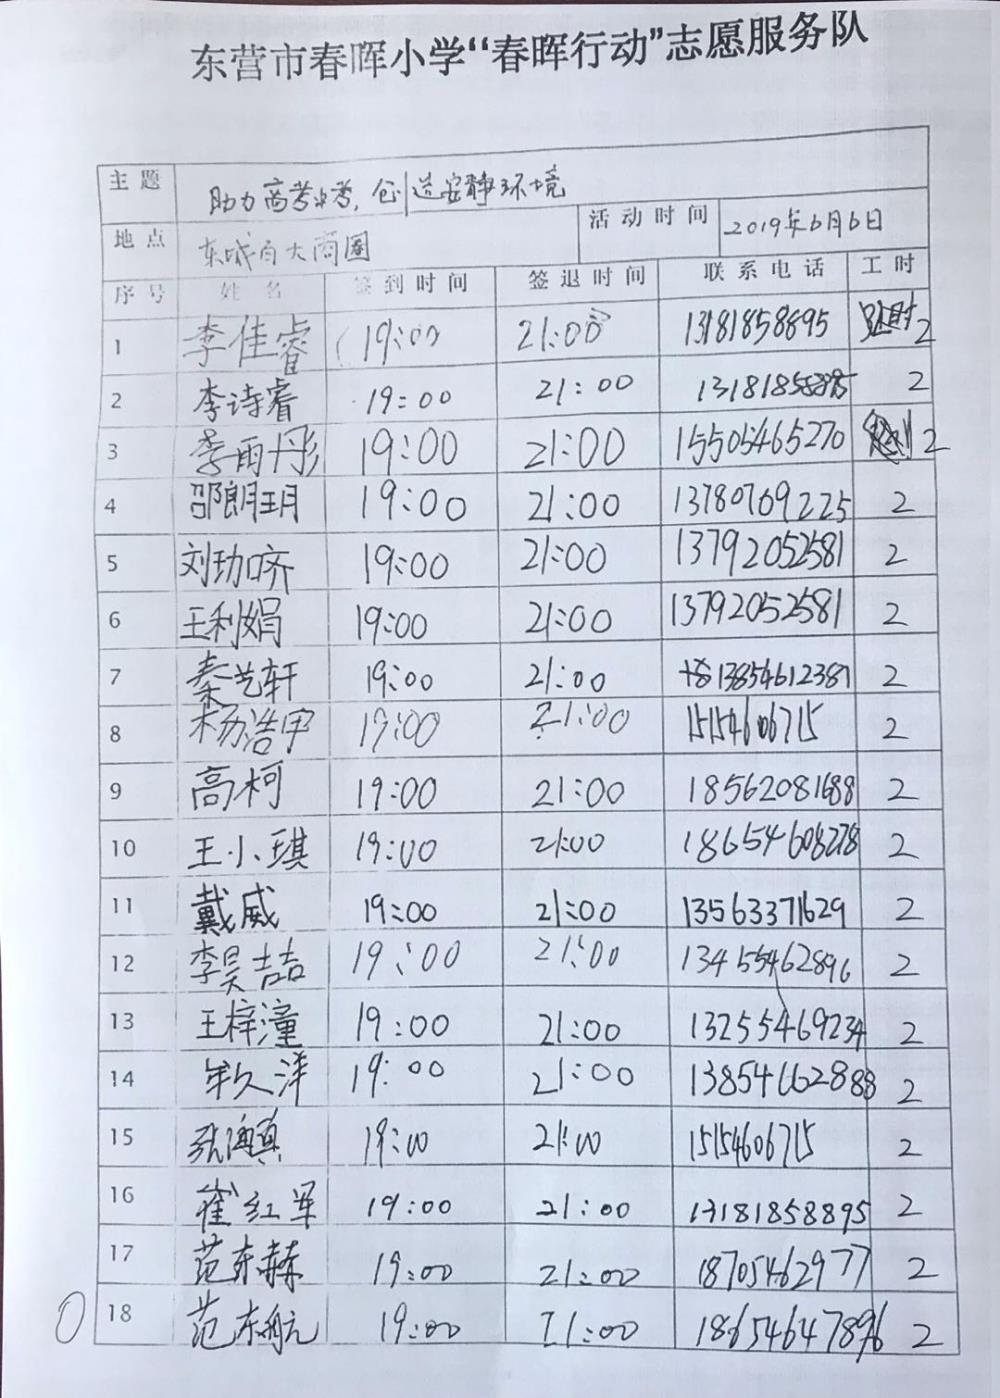 东营市春晖小学“春晖行动”志愿服务队
主题 助力高考中考，创造安静环境
地点 东城百大商圈 活动时间 2019年6月6日
序号 姓名 签到时间 签退时间 联系电话 工时
1 李佳睿 19:00 21:00 13181858895 2
2 李诗睿 19:00 21:00 13181858895 2
3 李雨彤 19:00 21:00 15505465270 2
4 邵朗玥 19:00 21:00 13780769225 2
5 刘玏哜 19:00 21:00 13792052581 2
6 王利娟 19:00 21:00 13792052581 2
7 秦艺轩 19:00 21:00 +8613854612387 2
8 杨浩宇 19:00 21:00 15154606715 2
9 高柯 19:00 21:00 18562081688 2
10 王小琪 19:00 21:00 18654608278 2
11 戴威 19:00 21:00 13563371629 2
12 李昊喆 19:00 21:00 13455462896 2
13 王梓潼 19:00 21:00 13255469234 2
14 牟久洋 19:00 21:00 13854662888 2
15 张 19:00 21:00 15154606715 2
16 崔红军 19:00 21:00 13181858895 2
17 范东赫 19:00 21:00 18705462977 2
18 范东航 19:00 21:00 18654647896 2